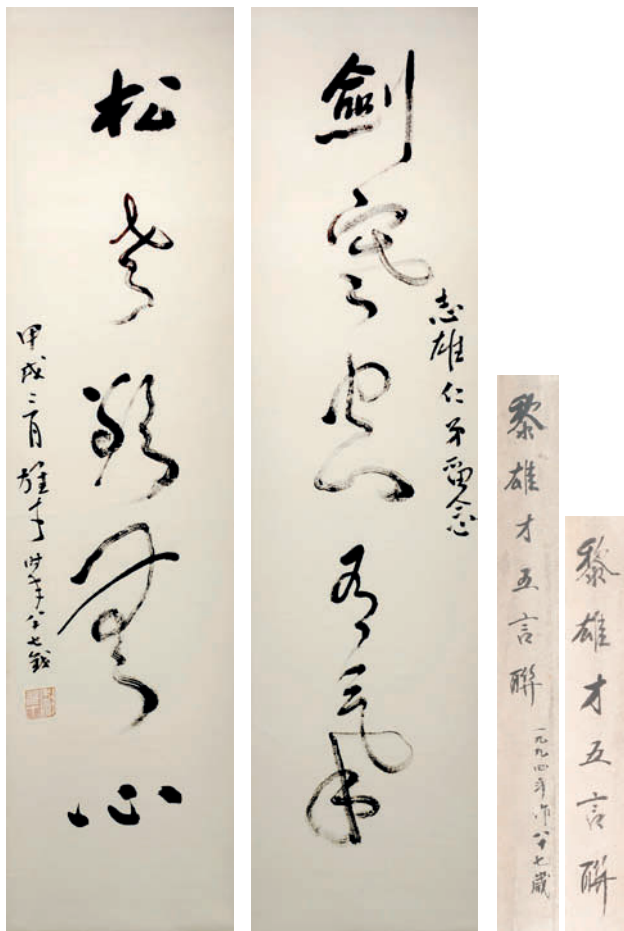 劍寒空有氣
志雄仁弟留念
松老欲無心
甲戌二月雄才時年八十七歲
黎雄才五言聯
一九九四年作八十七歲
黎雄才五言聯